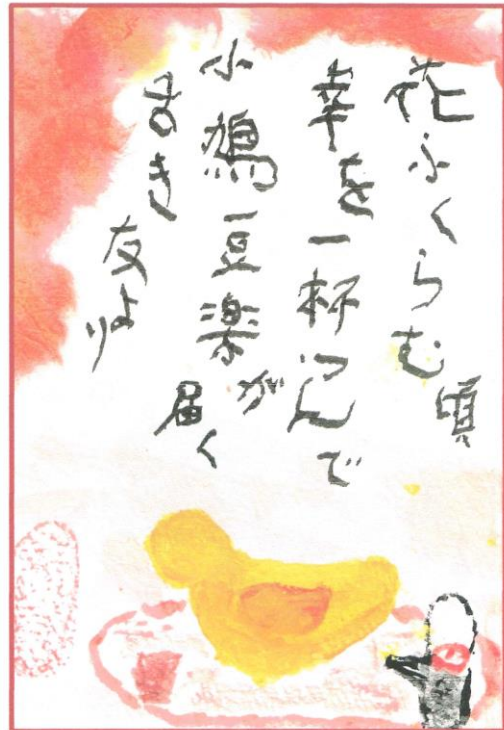 花ふくらむ頃
幸を一杯つんで
小鳩豆楽が届く
き友より